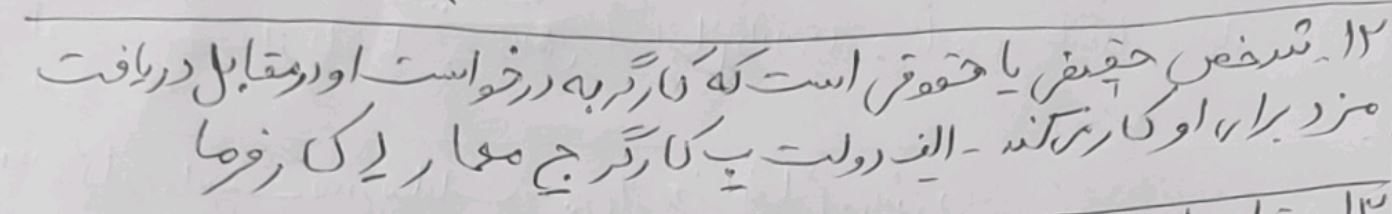 ۱۲. شخص حقیقی یا حقوقی است که کارگر به درخواست او در مقابل دریافت
مزد برای او کار می‌کند - الف دولت ب کارگر ج معمار د کارفرما
۱۳